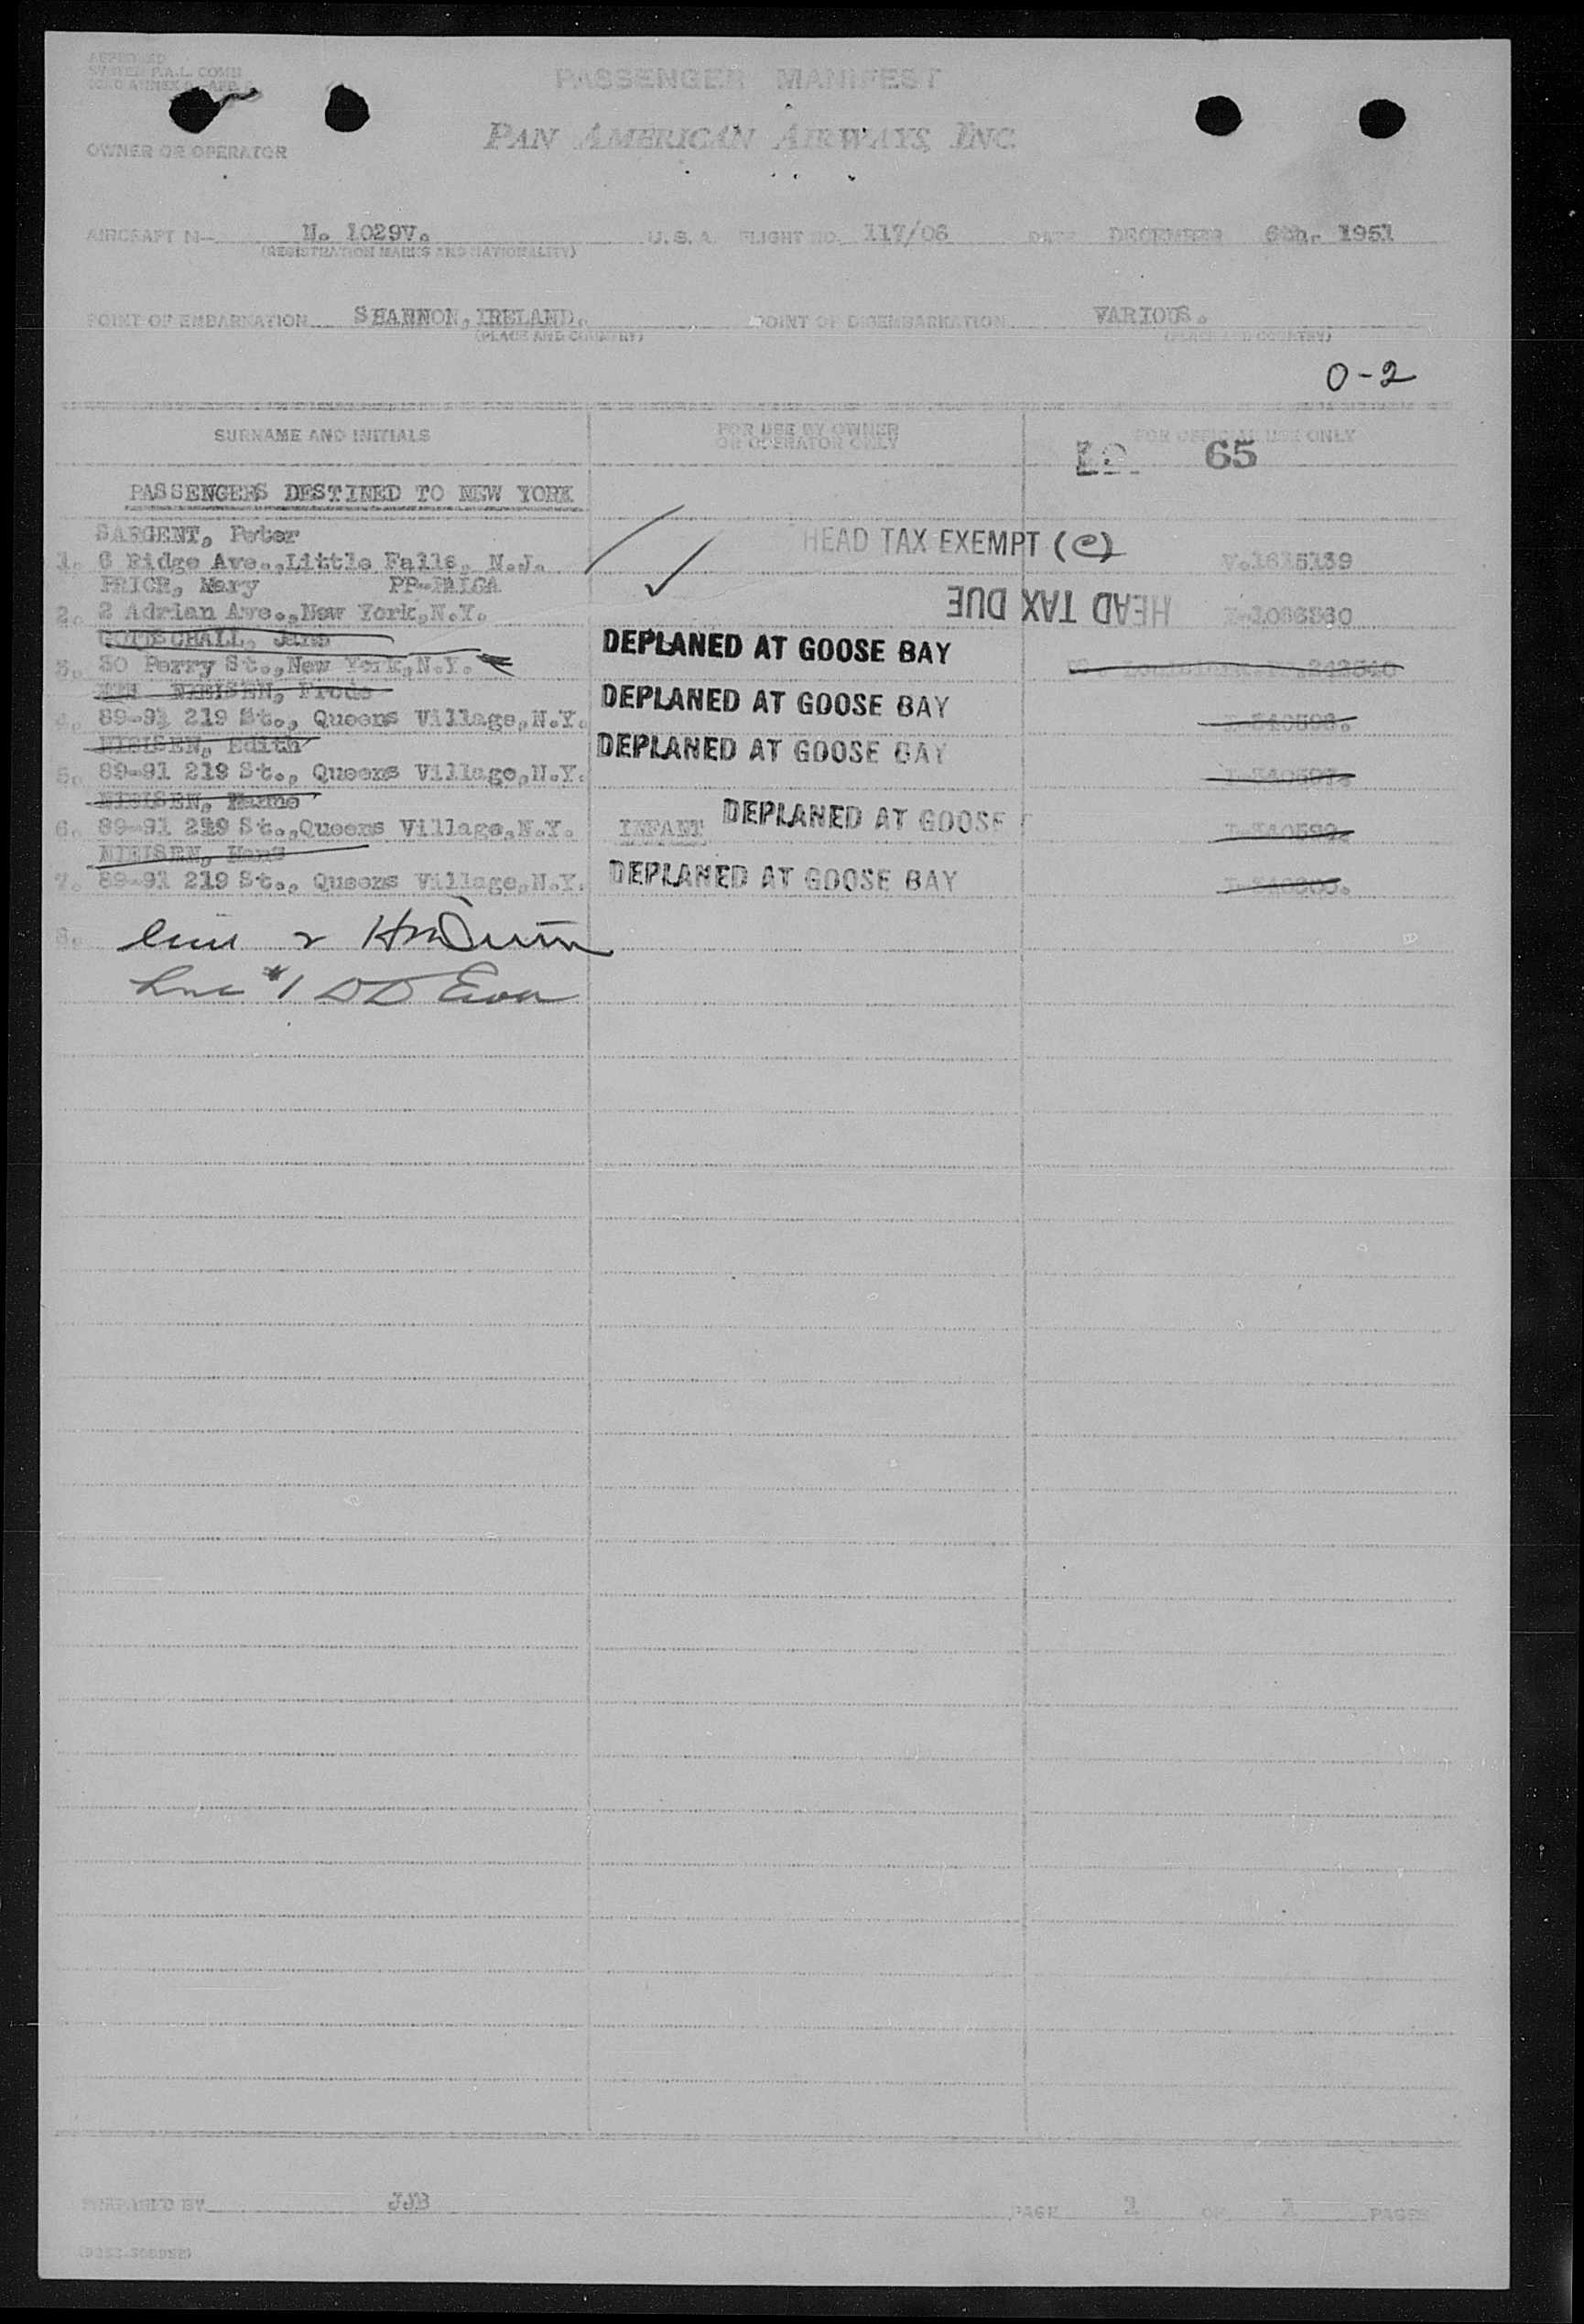 APPROVED
PASSENGER MANIFEST
PAN AMERICAN AIRWAYS, INC.
OWNER OR OPERATOR
AIRCRAFT N— N. 1029V. U.S.A. FLIGHT NO. 117/06 DATE DECEMBER 6th. 1951
(REGISTRATION MARKS AND NATIONALITY)
POINT OF EMBARKATION SHANNON, IRELAND. POINT OF DISEMBARKATION VARIOUS.
(PLACE AND COUNTRY) (PLACE AND COUNTRY)
0-2
SURNAME AND INITIALS FOR USE BY OWNER OR OPERATOR ONLY FOR OFFICIAL USE ONLY
65
PASSENGERS DESTINED TO NEW YORK
SARGENT, Peter HEAD TAX EXEMPT (e)
1. 6 Ridge Ave.,Little Falls, N.J.
PRICE, Mary
2. 2 Adrian Ave.,New York,N.Y. HEAD TAX DUE
GOTTSCHALL, Jane DEPLANED AT GOOSE BAY
3. 30 Perry St.,New York,N.Y.
NIELSEN, Frode DEPLANED AT GOOSE BAY
4. 89-91 219 St., Queens Village,N.Y.
NIELSEN, Edith DEPLANED AT GOOSE BAY
5. 89-91 219 St., Queens Village,N.Y.
NIELSEN, DEPLANED AT GOOSE
6. 89-91 219 St.,Queens Village,N.Y. INFANT
NIELSEN, Hans DEPLANED AT GOOSE BAY
7. 89-91 219 St., Queens Village,N.Y.
8. line 2
Line #1 DD
PREPARED BY JJB PAGE 1 OF 1 PAGES